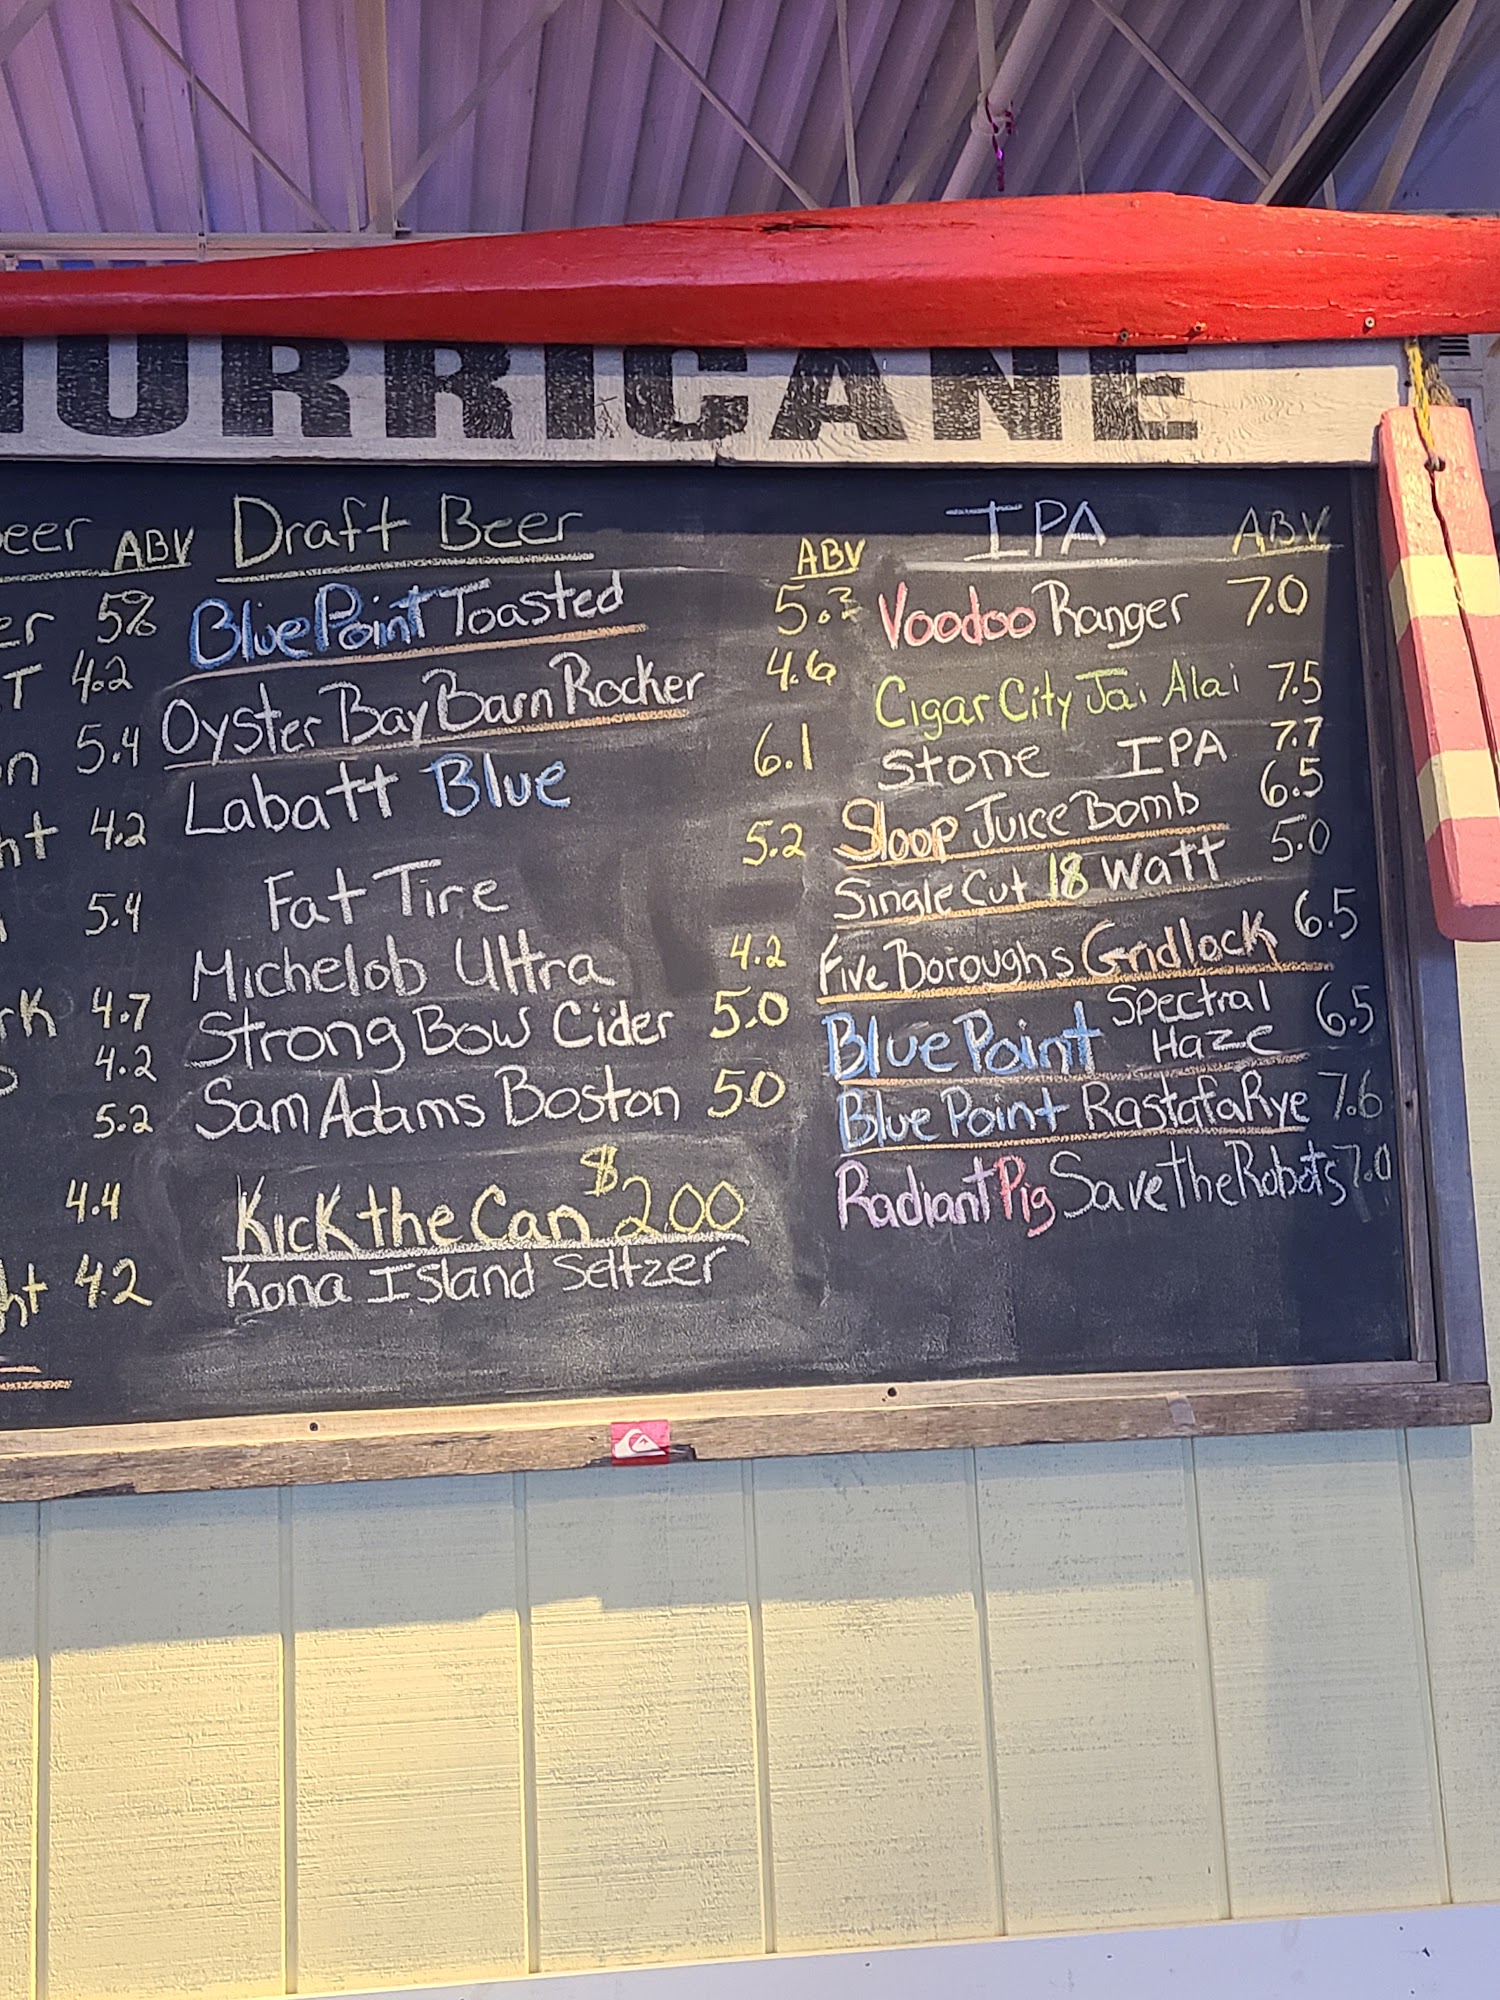 HURRICANE
eer ABV
er 5%
T 4.2
n 5.4
ht 4.2
5.4
rk 4.7
4.2
5.2
4.4
ht 4.2
Draft Beer ABV
Blue Point Toasted 5.3
Oyster Bay Barn Rocker 4.6
Labatt Blue 6.1
Fat Tire 5.2
Michelob Ultra 4.2
Strong Bow Cider 5.0
Sam Adams Boston 5.0
Kick the Can $200
Kona Island Seltzer
IPA ABV
Voodoo Ranger 7.0
Cigar City Jai Alai 7.5
Stone IPA 7.7
Sloop Juice Bomb 6.5
Single Cut 18 Watt 5.0
Five Boroughs Gridlock 6.5
Blue Point Spectral Haze 6.5
Blue Point RastafaRye 7.6
Radiant Pig Save the Robots 7.0